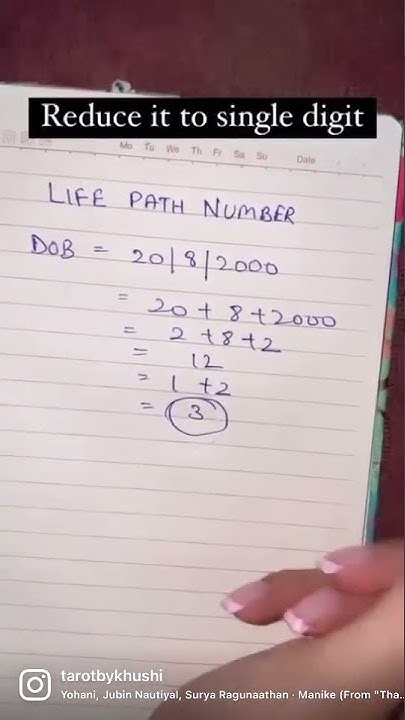 Reduce it to single digit
Mo Tu We Th Fr Sa Su Date
LIFE PATH NUMBER
DOB = 20/8/2000
= 20 + 8 + 2000
= 2 + 8 + 2
= 12
= 1 + 2
= 3
tarotbykhushi
Yohani, Jubin Nautiyal, Surya Ragunaathan · Manike (From "Tha...